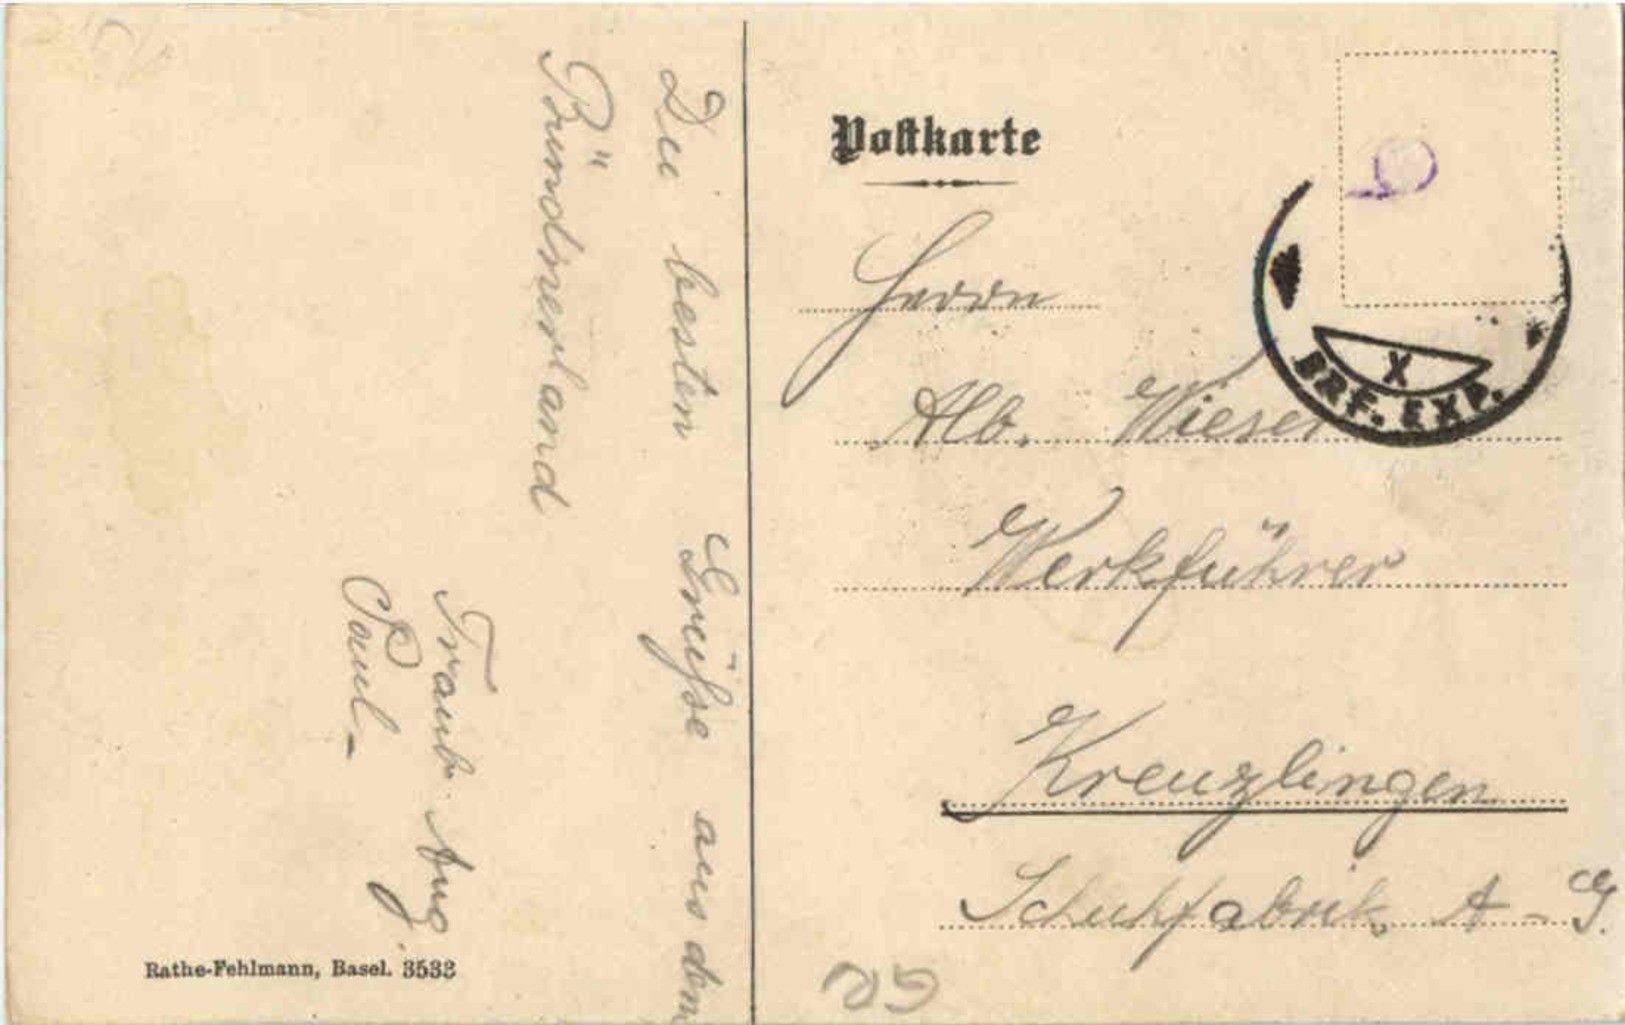 Die besten Grüsse aus dem
Bündnerland
Traub. Aug.
Paul -
Rathe-Fehlmann, Basel. 3533
Postkarte
Herrn
Alb. Wieser
Werkführer
Kreuzlingen
Schuhfabrik A-G.
X
BRF. EXP.